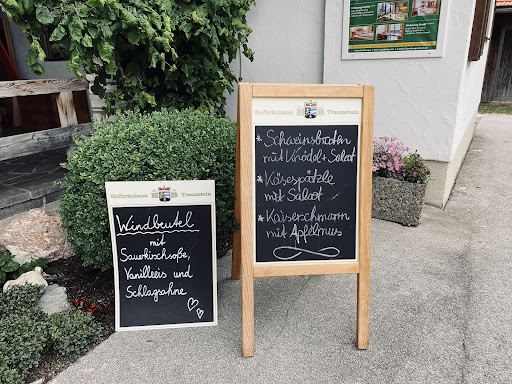 Hofbräuhaus Traunstein
Windbeutel
mit
Sauerkirschsoße,
Vanilleeis und
Schlagsahne
Hofbräuhaus Traunstein
* Schweinsbraten
mit Knödel + Salat
* Käsespätzle
mit Salat
* Kaiserschmarrn
mit Apfelmus